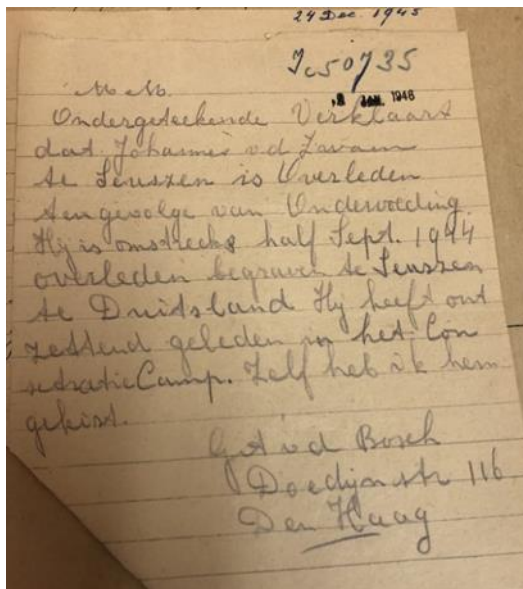 24 Dec. 1945
Jc50735
JAN. 1946
M M.
Ondergeteekende Verklaart
dat Johannes v d Zwaan
te Seuszen is Overleden
tengevolge van Ondervoeding.
Hij is omstreeks half Sept. 1944
overleden begraven te Seuszen
te Duitsland Hij heeft ont
zettend geleden in het Con
setratieCamp. Zelf heb ik hem
gekist.
Get v d Bosch
Doedijnstr 116
Den Haag